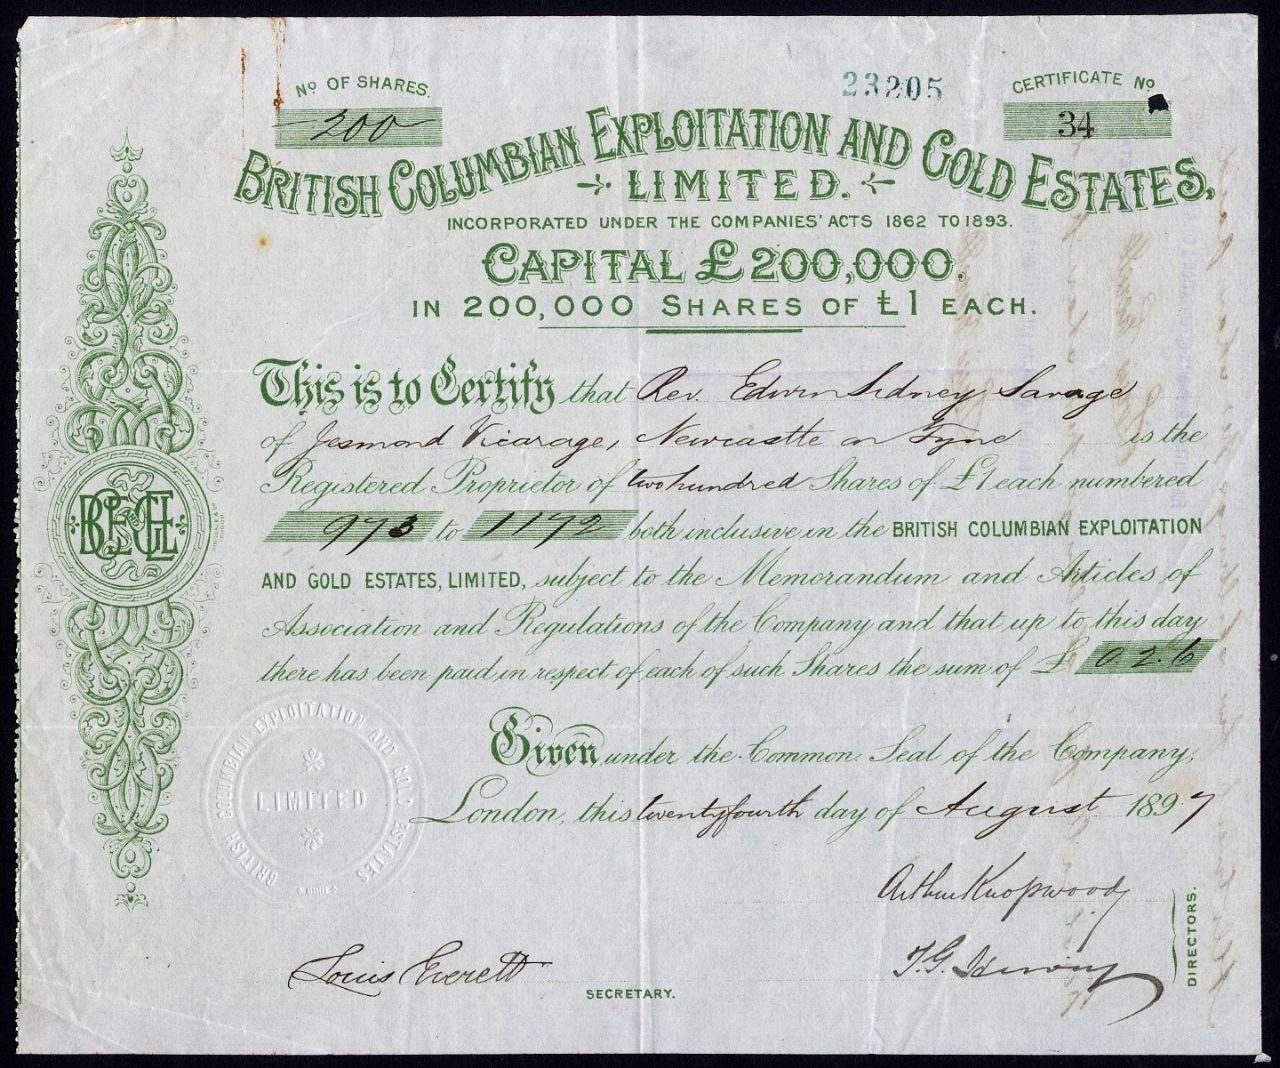 No OF SHARES.
200
23205
CERTIFICATE No
34
BRITISH COLUMBIAN EXPLOITATION AND GOLD ESTATES,
LIMITED.
INCORPORATED UNDER THE COMPANIES' ACTS 1862 TO 1893.
CAPITAL £200,000.
IN 200,000 SHARES OF £1 EACH.
This is to Certify that Rev. Edwin Sidney Savage
of Jesmond Vicarage, Newcastle on Tyne is the
Registered Proprietor of two hundred Shares of £1 each numbered
973 to 1172 both inclusive in the BRITISH COLUMBIAN EXPLOITATION
AND GOLD ESTATES, LIMITED, subject to the Memorandum and Articles of
Association and Regulations of the Company and that up to this day
there has been paid in respect of each of such Shares the sum of £ 0 2.6
Given under the Common Seal of the Company,
London, this twenty fourth day of August 1897
BRITISH COLUMBIAN EXPLOITATION AND GOLD ESTATES
LIMITED
Arthur Knopwood
T.G.
DIRECTORS.
Louis Everett
SECRETARY.